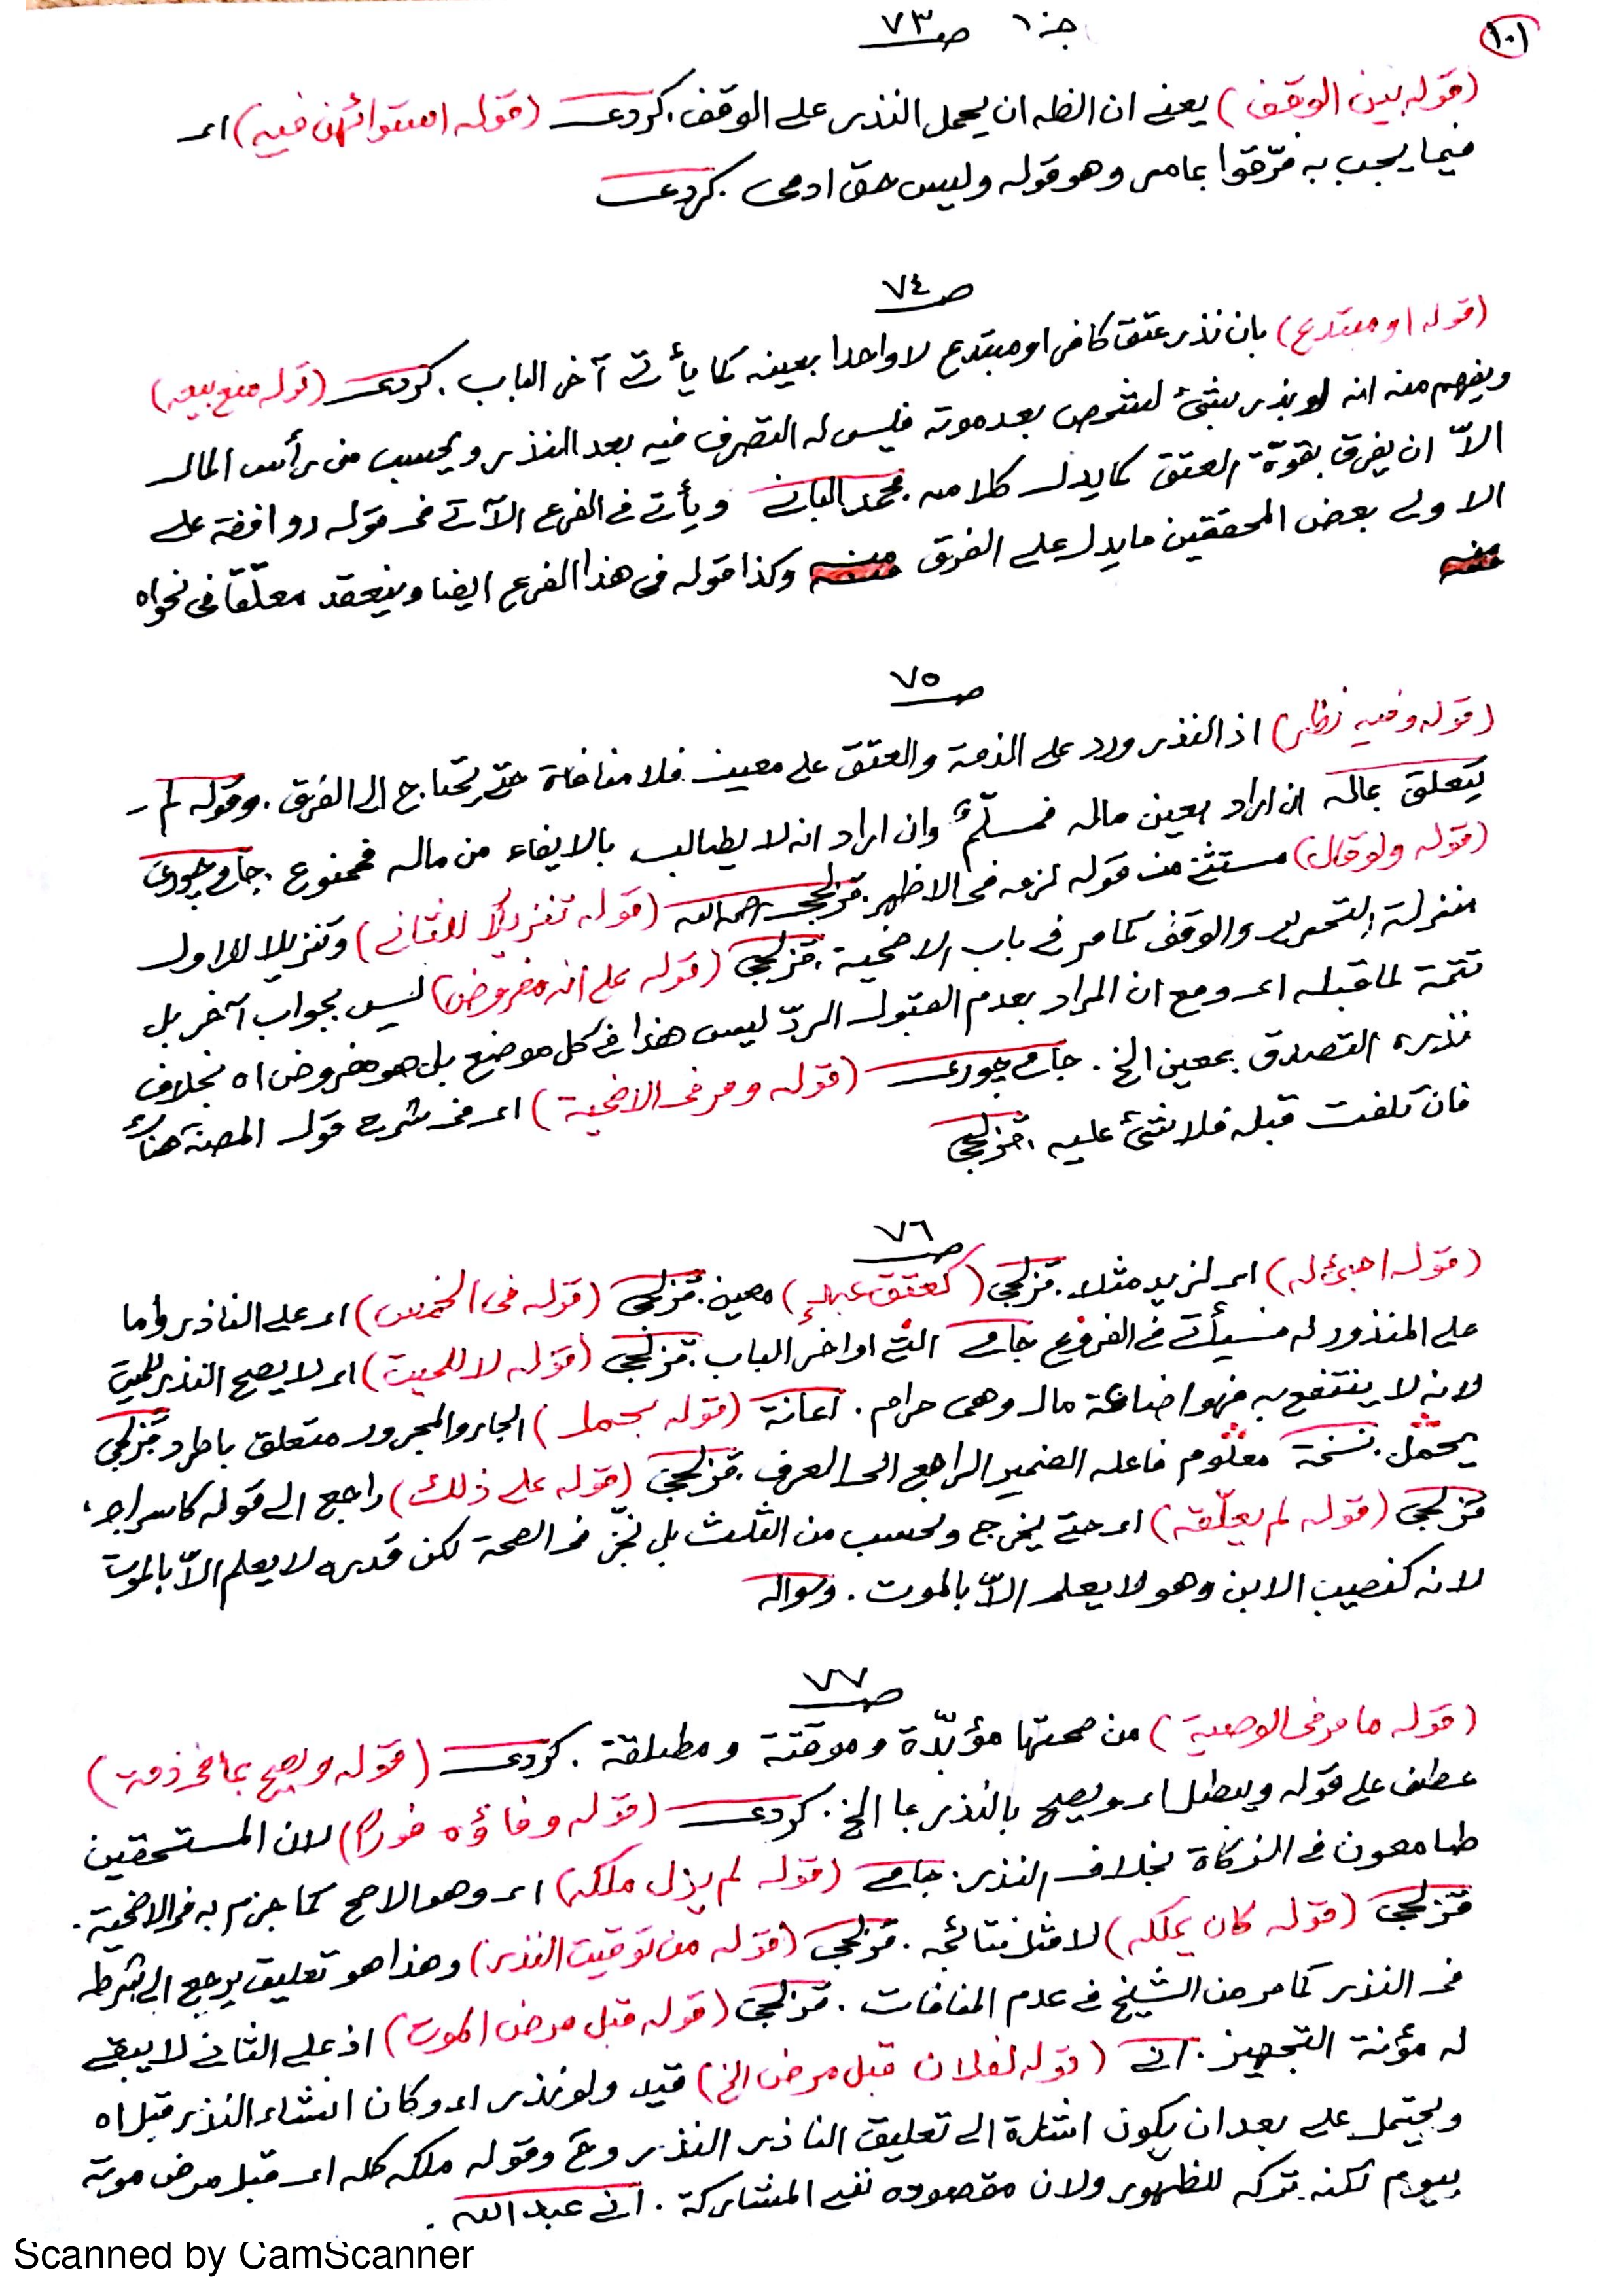 ١٠١
جـ ١٠ صـ ٧٣
(قوله بين الوقف) يعني ان الظه ان يحمل النذر على الوقف. كردى (قوله استوائهن فيه) اى
فيما يجب به فرّقوا بما مر وهو قوله وليس حق ادمى. كردى
صـ ٧٤
(قوله او مبتدع) بان نذر عتق كافر او مبتدع لا واحدا بعينه كما يأتى آخر الباب. كردى (قوله منع بيعه)
ويفهم منه انه لو نذر بشئ لشخص بعد موته فليس له التصرف فيه بعد النذر ويحسب من رأس المال
الاّ ان يفرق بقوّة العتق كما يدل كلامه. محمد البانى ويأتى فى الفرع الآتى فى قوله ووافقه على
الاولى بعض المحققين ما يدل على الفرق منه وكذا قوله فى هذا الفرع ايضا وينعقد معلّقا فى نحو اه
منه
صـ ٧٥
(قوله وفيه نظر) اذ النذر ورد على الذمة والعتق على معين فلا منافاة حتى يحتاج الى الفرق. وقوله لم
يتعلق بماله ان اراد بعين ماله فمسلّم وان اراد انه لا يطالب بالايفاء من ماله فممنوع. جامى چورى
(قوله ولو قال) مستثنى من قوله لزمه فى الاظهر. قزلجى رحمه الله (قوله تنزيلا للثانى) وتنزيلا للاول
منزلة التحرير والوقف كما مر فى باب الاضحية. قزلجى (قوله على انه مفروض) ليس بجواب آخر بل
تتمة لما قبله اى ومع ان المراد بعدم القبول الردّ ليس هذا فى كل موضع بل هو مفروض اه بخلاف
نذره التصدق بمعين الخ. جامى چورى (قوله ومر فى الاضحية) اى فى شرح قول المصـ هناك
فان تلفت قبله فلا شئ عليه. قزلجى
صـ ٧٦
(قوله اجنبى له) اى لزيد مثلا. قزلجى (كعتق عبد) معين. قزلجى (قوله فى الخمس) اى على الناذر واما
على المنذور له فسيأتى فى الفروع جامى التى اواخر الباب. قزلجى (قوله لا للميت) اى لا يصح النذر للميت
لانه لا ينتفع به فهو اضاعة مال وهى حرام. اعانة (قوله بحمل) الجار والمجرور متعلق باطرد قزلجى
يحتمل. نسخة معلوم فاعله الضمير الراجع الى العرف. قزلجى (قوله على ذلك) راجع الى قوله كاسراج،
قزلجى (قوله لم يعلّقه) اى حتى يخرج ويحسب من الثلث بل نجّز فى الصحة لكن قدره لا يعلم الاّ بالموت
لانه كنصيب الابن وهو لا يعلم الاّ بالموت.
صـ ٧٧
(قوله ما مر فى الوصية) من صحتها مؤبّدة وموقتة ومطلقة. كردى (قوله ويصح بما فى ذمته)
عطف على قوله ويبطل اى ويصح بالنذر بما الخ. كردى (قوله وفاؤه فورا) لان المستحقين
طامعون فى الزكاة بخلاف النذر. جامى (قوله لم يزل ملكه) اى وهو الاصح كما جزم به فى الاضحية.
قزلجى (قوله كان يملكه) لا مثل نتائجه. قزلجى (قوله من توقيت النذر) وهذا هو تعليق يرجع الى شرط
فى النذر كما مر من الشيخ فى عدم المنافات. قزلجى (قوله قبل مرض الموت) اذ على الثانى لا يبقى
له مؤنة التجهيز. انى (قوله لفلان قبل مرض الخ) قيد ولو نذر اى وكان انشاء النذر قبل اه
ويحتمل على بعد ان يكون اشارة الى تعليق الناذر النذر وح وقوله ملكه كله اى قبل مرض موته
بيوم لكنه تركه للظهور ولان مقصوده نفى المشاركة. انى عبد الله.
Scanned by CamScanner